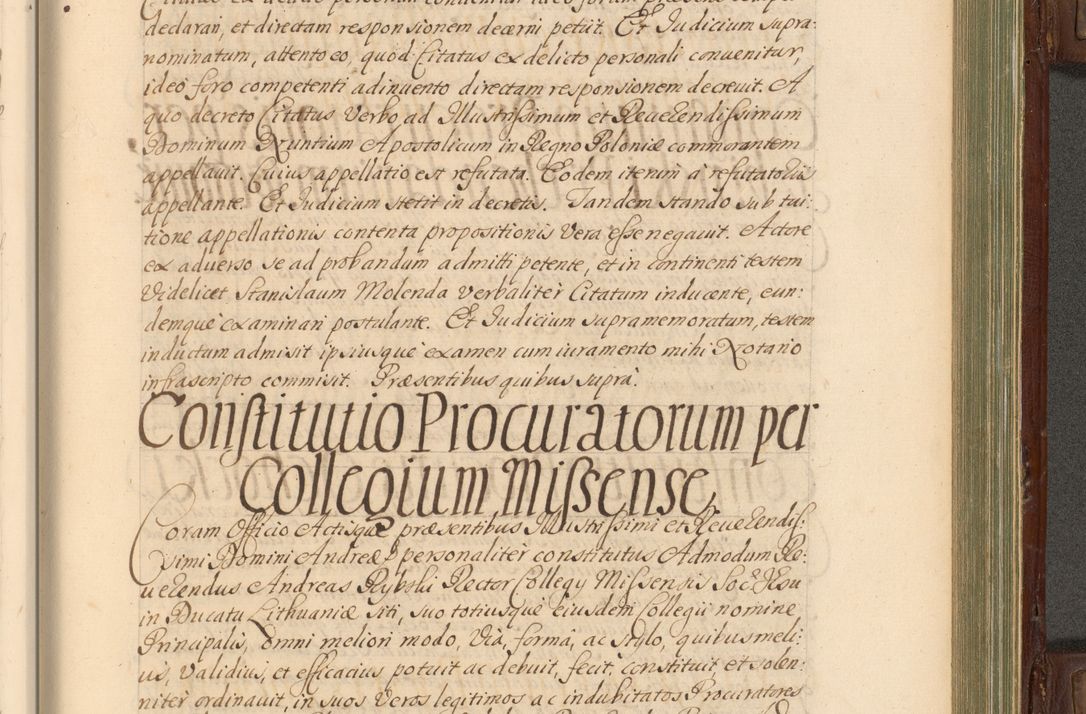 declarari, et directam responsionem decerni petiit. Et Iudicium supra:
nominatum, attento eo, quod Citatus ex delicto personali convenitur,
ideo foro competenti adinvento directam responsionem decrevit. A
quo decreto Citatus Verbo ad Illustrissimum et Reverendissimum
Dominum Nuntium Apostolicum in Regno Poloniæ commorantem
appellavit. Cuius appellatio est refutata. Eodem iterum à refutatoriis
appellante. Et Iudicium stetit in decretis. Tandem stando sub tui:
tione appellationis contenta propositionis Vera esse negavit. Actore
ex adverso se ad probandum admitti petente, et in continenti testem
Videlicet, Stanislaum Molenda verbaliter Citatum inducente, eun:
demque examinari postulante. Et Iudicium supramemoratum, testem
inductum admisit ipsiusque examen cum iuramento mihi Notario
infrascripto commisit. Præsentibus quibus suprà.
Constitutio Procuratorum per
Collegium Missense.
Coram Officio Actisque præsentibus Illustrissimi et Reverendis:
simi Domini Andreæ personaliter constitutus Admodum Re:
verendus Andreas Rybski Rector Collegy Missensis Soc: Iesu
in Ducatu Lithuaniæ siti, suo totiusque eiusdem Collegii nomine
Principalis, omni meliori modo, Via, formâ, ac stylo, quibus meli:
us, Validius, et efficacius potuit ac debuit, fecit, constituit, et solen:
niter ordinavit, in suos Veros legitimos ac indubitatos Procuratores